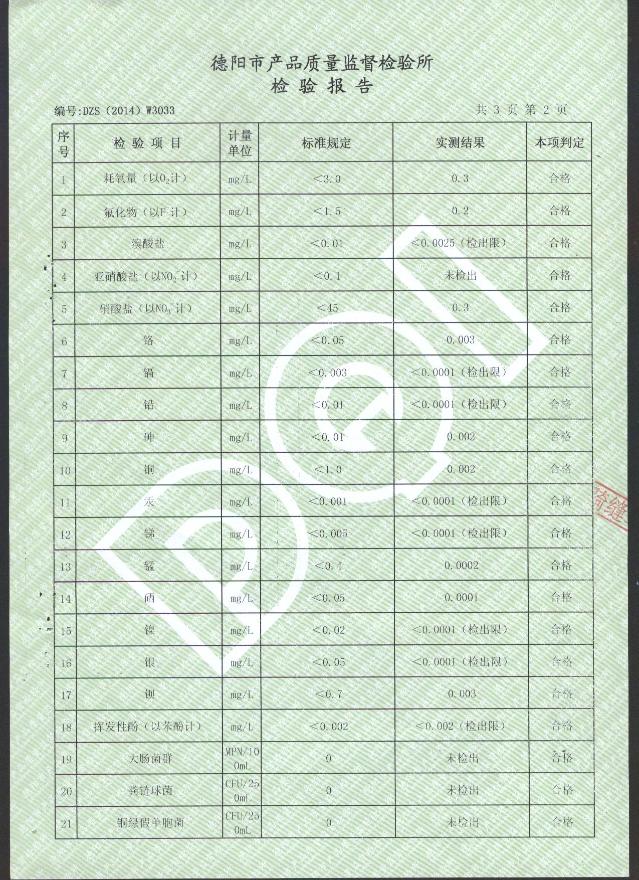 德阳市产品质量监督检验所
检 验 报 告
编号:DZS（2014）W3033 共 3 页 第 2 页
序号 检 验 项 目 计量单位 标准规定 实测结果 本项判定
1 耗氧量（以O₂计） mg/L <3.0 0.3 合格
2 氟化物（以F⁻计） mg/L <1.5 0.2 合格
3 溴酸盐 mg/L <0.01 <0.0025（检出限） 合格
4 亚硝酸盐（以NO₂⁻计） mg/L <0.1 未检出 合格
5 硝酸盐（以NO₃⁻计） mg/L <45 0.3 合格
6 铬 mg/L <0.05 0.003 合格
7 镉 mg/L <0.003 <0.0001（检出限） 合格
8 铅 mg/L <0.01 <0.0001（检出限） 合格
9 砷 mg/L <0.01 0.002 合格
10 铜 mg/L <1.0 0.002 合格
11 汞 mg/L <0.001 <0.0001（检出限） 合格
12 锑 mg/L <0.005 <0.0001（检出限） 合格
13 锰 mg/L <0.4 0.0002 合格
14 硒 mg/L <0.05 0.0001 合格
15 镍 mg/L <0.02 <0.0001（检出限） 合格
16 银 mg/L <0.05 <0.0001（检出限） 合格
17 钡 mg/L <0.7 0.003 合格
18 挥发性酚（以苯酚计） mg/L <0.002 <0.002（检出限） 合格
19 大肠菌群 MPN/100mL 0 未检出 合格
20 粪链球菌 CFU/250mL 0 未检出 合格
21 铜绿假单胞菌 CFU/250mL 0 未检出 合格
骑缝